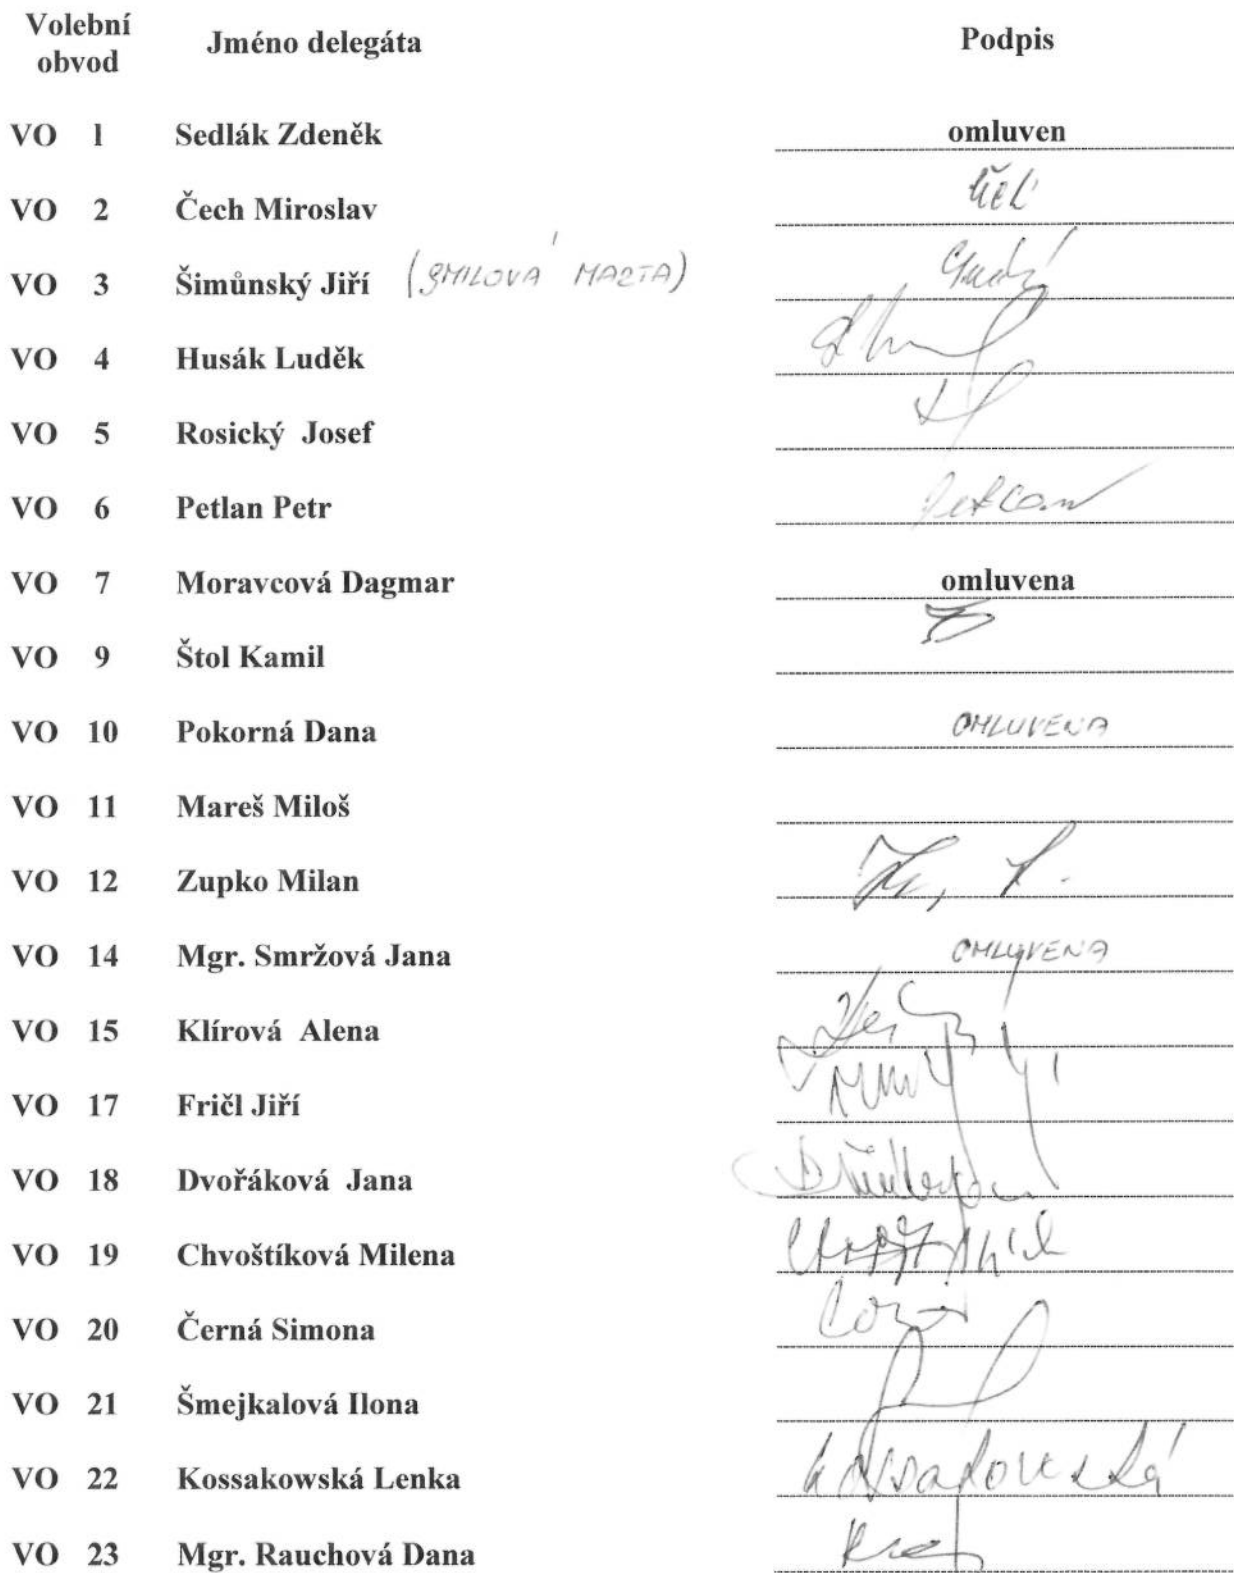 Volební obvod Jméno delegáta Podpis
VO 1 Sedlák Zdeněk omluven
VO 2 Čech Miroslav
VO 3 Šimůnský Jiří (SMILOVÁ MARTA)
VO 4 Husák Luděk
VO 5 Rosický Josef
VO 6 Petlan Petr
VO 7 Moravcová Dagmar omluvena
VO 9 Štol Kamil
VO 10 Pokorná Dana OMLUVENA
VO 11 Mareš Miloš
VO 12 Zupko Milan
VO 14 Mgr. Smržová Jana OMLUVENA
VO 15 Klírová Alena
VO 17 Fričl Jiří
VO 18 Dvořáková Jana
VO 19 Chvoštíková Milena
VO 20 Černá Simona
VO 21 Šmejkalová Ilona
VO 22 Kossakowská Lenka Kossakowská
VO 23 Mgr. Rauchová Dana